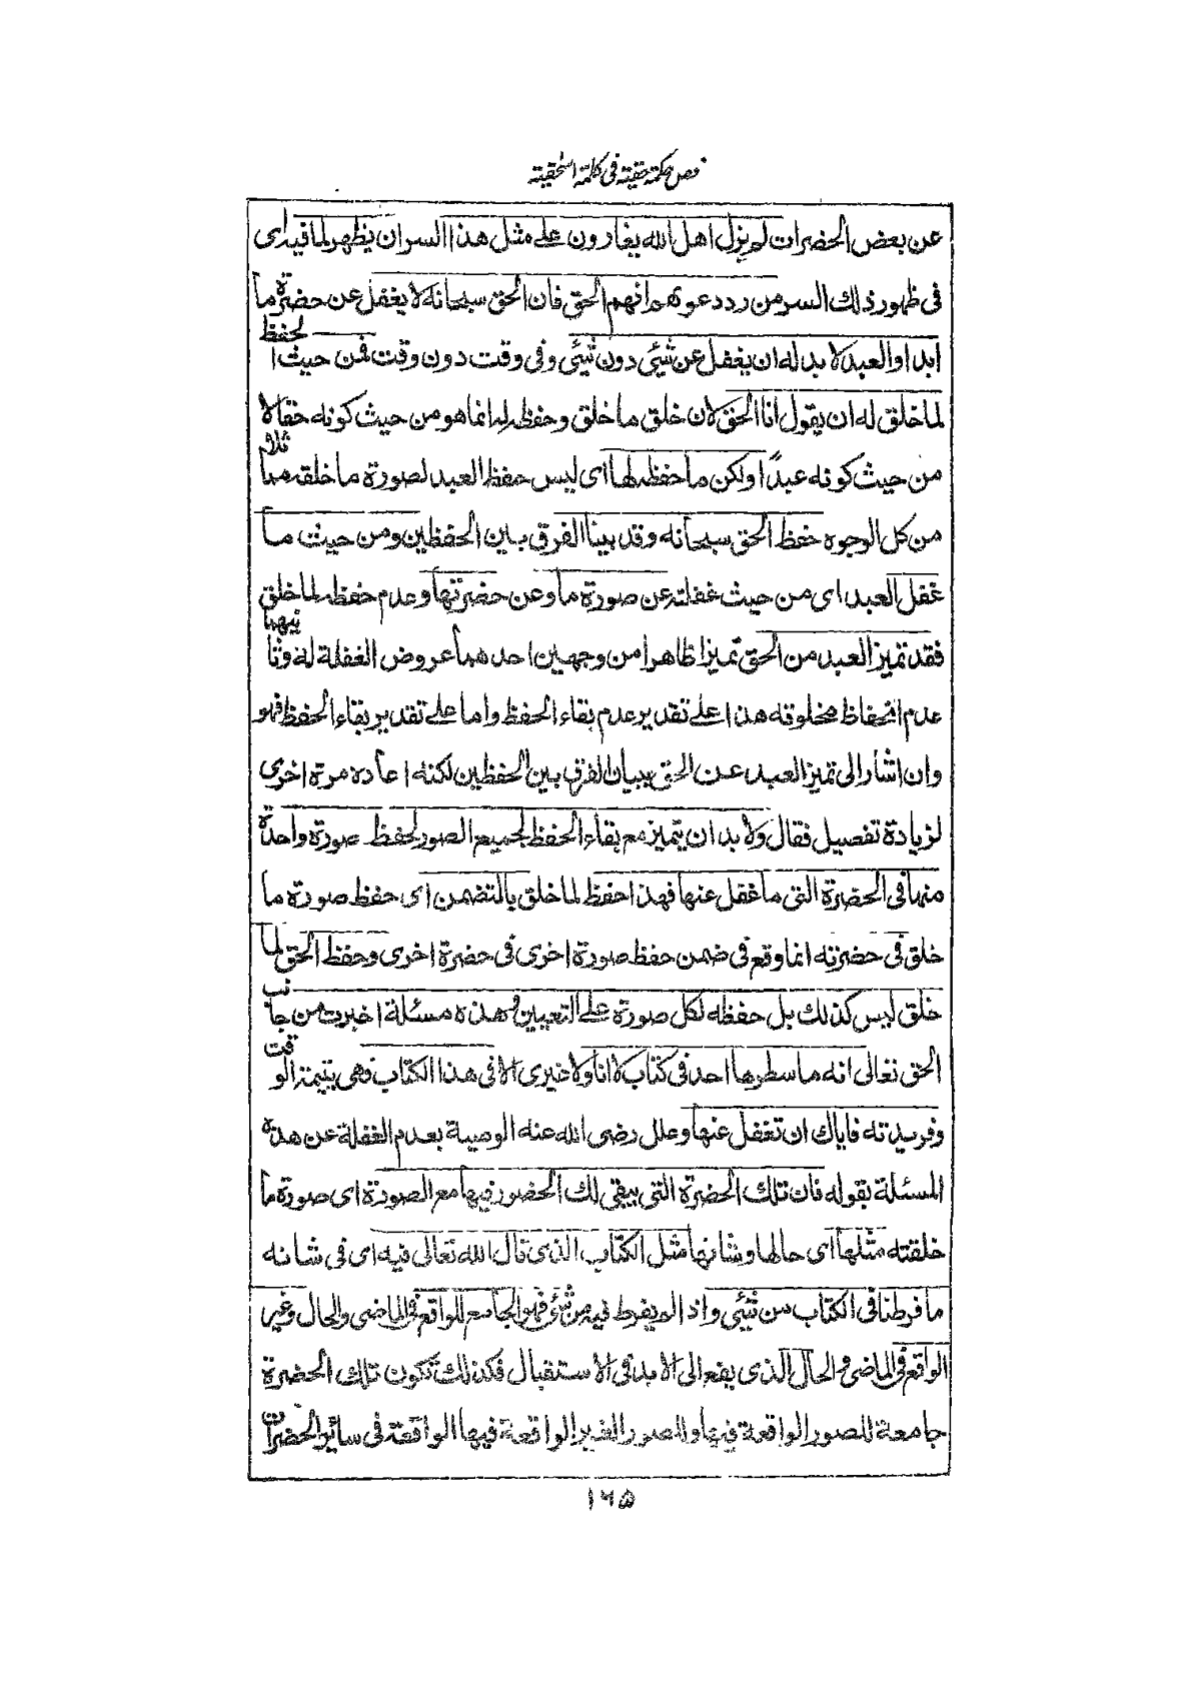 فص حكمة حقية فى كلمة اسحقية
عن بعض الحضرات لم يزل اهل الله يغارون على مثل هذا السر ان يظهر لما فيه اى
فى ظهور ذلك السر من رد دعوهم انهم الحق فان الحق سبحانه لا يغفل عن حضرة ما
ابدا والعبد لا بد له ان يغفل عن شئى دون شئى وفى وقت دون وقت فمن حيث الحفظ
لما خلق له ان يقول انا الحق لان خلق ما خلق وحفظه له انما هو من حيث كونه حقا لا
من حيث كونه عبدًا ولكن ما حفظه لها اى ليس حفظ العبد لصورة ما خلقه مثلا
من كل الوجوه حفظ الحق سبحانه وقد بينا الفرق بين الحفظين ومن حيث ما
غفل العبد اى من حيث غفلته عن صورة ما وعن حضرتها وعدم حفظه لما خلق
فقد تميز العبد من الحق تميزا ظاهرا من وجهين احدهما عروض الغفلة له وثانيهما
عدم انحفاظ مخلوقه هذا على تقدير عدم بقاء الحفظ واما على تقدير بقاء الحفظ فهو
وان اشار الى تميز العبد عن الحق ببيان الفرق بين الحفظين لكنه اعاده مرة اخرى
لزيادة تفصيل فقال ولا بد ان يتميز مع بقاء الحفظ لجميع الصور لحفظ صورة واحدة
منها فى الحضرة التى ما غفل عنها فهذا حفظ لما خلق بالتضمن اى حفظ صورة ما
خلق فى حضرته انما وقع فى ضمن حفظ صورة اخرى فى حضرة اخرى وحفظ الحق لما
خلق ليس كذلك بل حفظه لكل صورة على التعيين وهذه مسئلة اخبرت من جانب
الحق تعالى انه ما سطرها احد فى كتاب لا انا ولا غيرى الا فى هذا الكتاب فهى يتيمة الوقت
وفريدته فاياك ان تغفل عنها وعلل رضى الله عنه الوصية بعدم الغفلة عن هذه
المسئلة بقوله فان تلك الحضرة التى يبقى لك الحضور فيها مع الصورة اى صورة ما
خلقته مثلها اى حالها وشانها مثل الكتاب الذى قال الله تعالى فيه اى فى شانه
ما فرطنا فى الكتاب من شئى واذا لم يفرط فيه من شئى فهو الجامع للواقع فى الماضى والحال وغير
الواقع فى الماضى والحال الذى يقع الى الابد فى الاستقبال فكذلك تكون تلك الحضرة
جامعة للصور الواقعة فيها وللصور الغير الواقعة فيها الواقعة فى سائر الحضرات
١٢٥